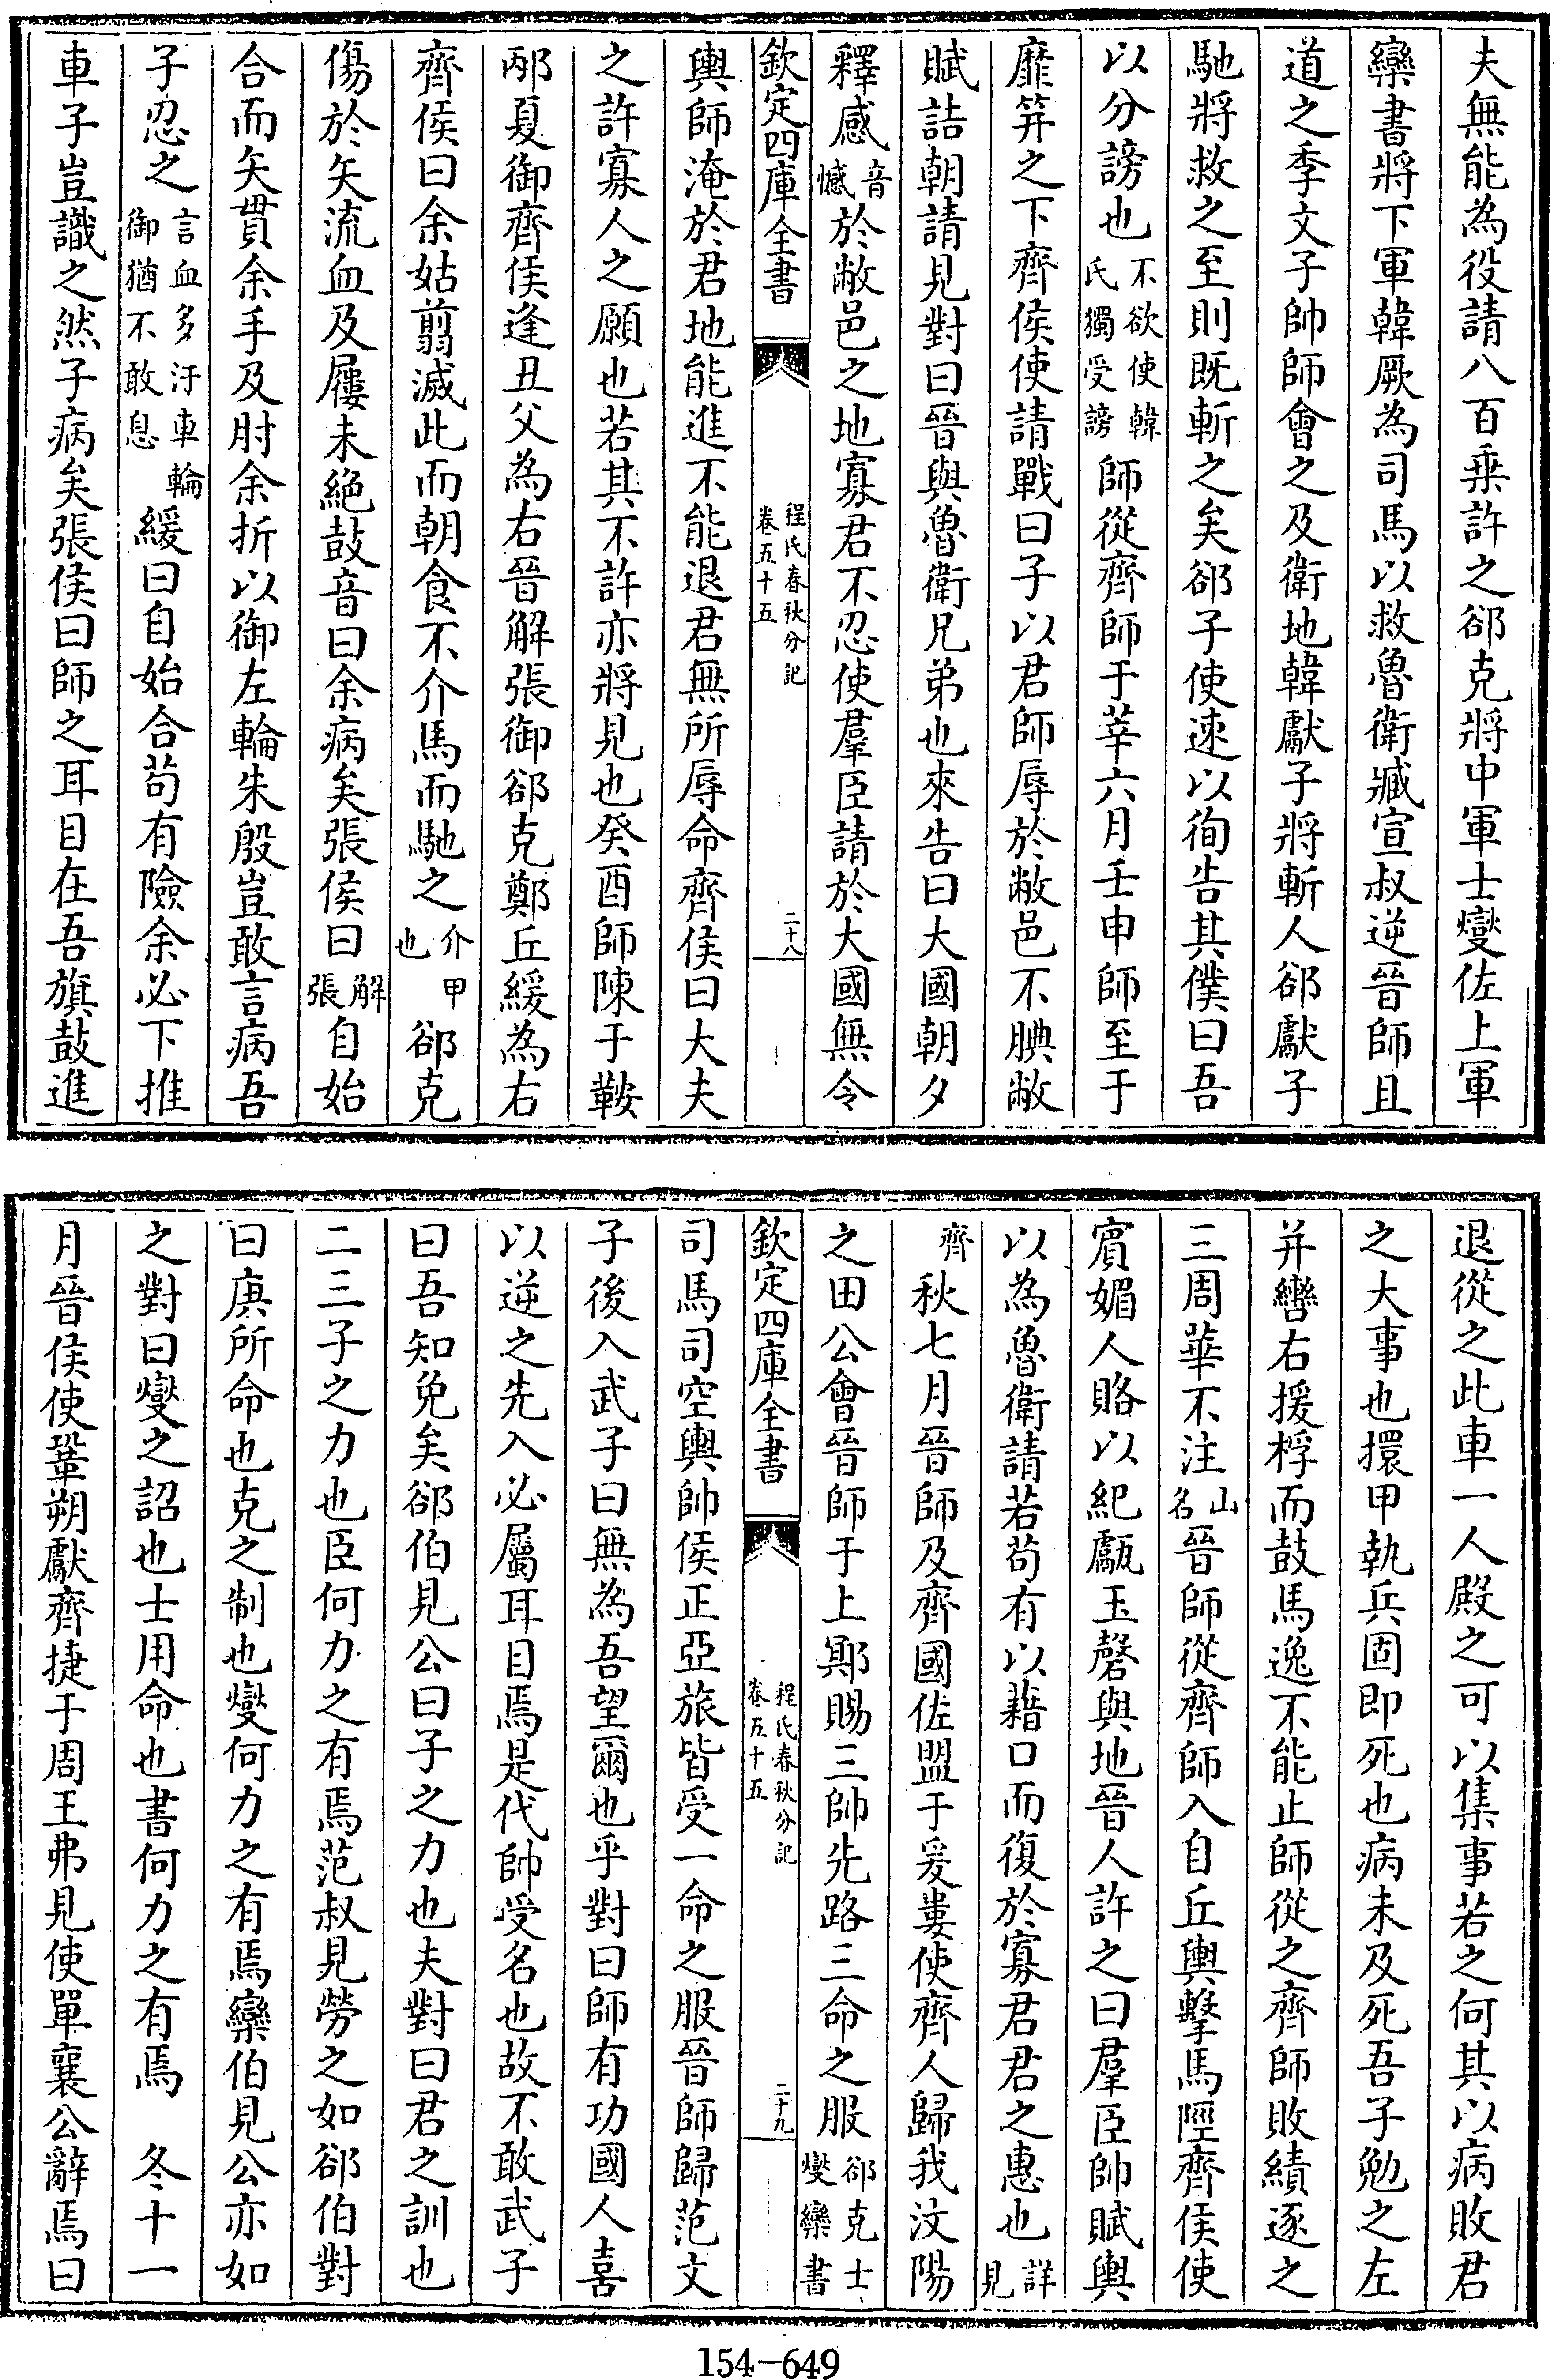 夫無能為役請八百乘許之郤克將中軍士燮佐上軍
欒書將下軍韓厥為司馬以救魯衛臧宣叔逆晉師且
道之季文子帥師會之及衛地韓獻子將斬人郤獻子
馳將救之至則既斬之矣郤子使速以徇告其僕曰吾
以分謗也不欲使韓氏獨受謗師從齊師于莘六月壬申師至于
靡笄之下齊侯使請戰曰子以君師辱於敝邑不腆敝
賦詰朝請見對曰晉與魯衛兄弟也來告曰大國朝夕
釋感音憾於敝邑之地寡君不忍使羣臣請於大國無令
欽定四庫全書 程氏春秋分記卷五十五 二十八
輿師淹於君地能進不能退君無所辱命齊侯曰大夫
之許寡人之願也若其不許亦將見也癸酉師陳于鞍
邴夏御齊侯逢丑父為右晉解張御郤克鄭丘緩為右
齊侯曰余姑翦滅此而朝食不介馬而馳之介甲也郤克
傷於矢流血及屨未絕鼓音曰余病矣張侯曰解張自始
合而矢貫余手及肘余折以御左輪朱殷豈敢言病吾
子忍之言血多汙車輪御猶不敢息緩曰自始合苟有險余必下推
車子豈識之然子病矣張侯曰師之耳目在吾旗鼓進
退從之此車一人殿之可以集事若之何其以病敗君
之大事也擐甲執兵固即死也病未及死吾子勉之左
并轡右援桴而鼓馬逸不能止師從之齊師敗績逐之
三周華不注山名晉師從齊師入自丘輿擊馬陘齊侯使
賓媚人賂以紀甗玉磬與地晉人許之曰羣臣帥賦輿
以為魯衛請若苟有以藉口而復於寡君君之惠也詳見
齊秋七月晉師及齊國佐盟于爰婁使齊人歸我汶陽
之田公會晉師于上鄍賜三帥先路三命之服郤克士燮欒書
欽定四庫全書 程氏春秋分記卷五十五 二十九
司馬司空輿帥侯正亞旅皆受一命之服晉師歸范文
子後入武子曰無為吾望爾也乎對曰師有功國人喜
以逆之先入必屬耳目焉是代帥受名也故不敢武子
曰吾知免矣郤伯見公曰子之力也夫對曰君之訓也
二三子之力也臣何力之有焉范叔見勞之如郤伯對
曰庚所命也克之制也燮何力之有焉欒伯見公亦如
之對曰燮之詔也士用命也書何力之有焉 冬十一
月晉侯使鞏朔獻齊捷于周王弗見使單襄公辭焉曰
154-649